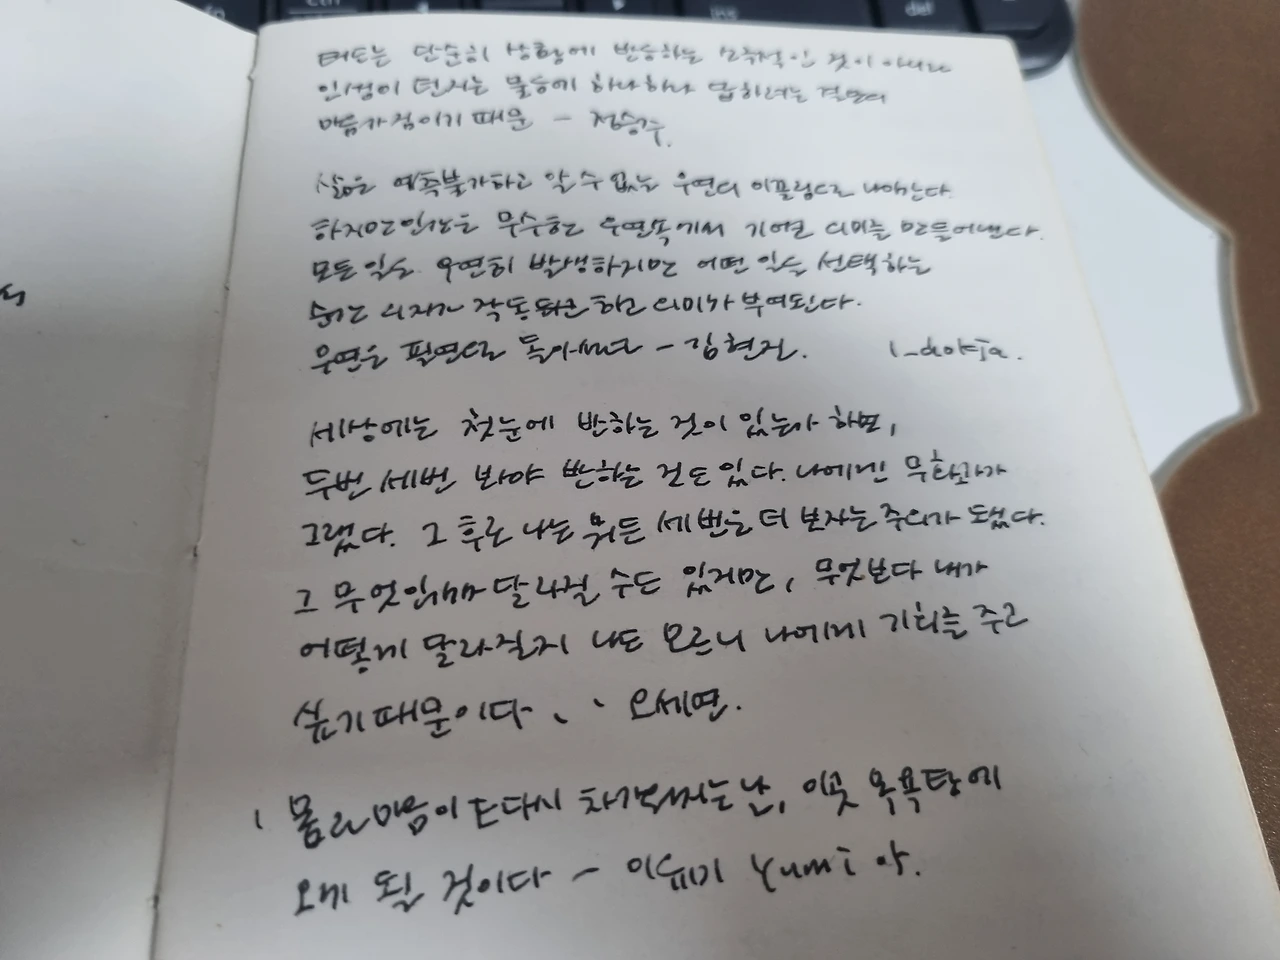 태도는 단순히 상황에 반응하는 소극적인 것이 아니라
인생이 던지는 물음에 하나하나 답하려는 결연한
마음가짐이기 때문 - 정승주.
삶은 예측불가하고 알 수 없는 우연의 이끌림으로 나아간다.
하지만 인간은 무수한 우연속에서 기어코 의미를 만들어낸다.
모든 일은 우연히 발생하지만 어떤 일을 선택하는
순간 의지가 작동되곤 하고 의미가 부여된다.
우연은 필연으로 돌아 - 김현진.
세상에는 첫눈에 반하는 것이 있는가 하면,
두번 세번 봐야 반하는 것도 있다. 나에겐 무화과가
그랬다. 그 후로 나는 뭐든 세번은 더 보자는 주의가 됐다.
그 무엇인가가 달라질 수도 있지만, 무엇보다 내가
어떻게 달라질지 나도 모르니 나에게 기회를 주고
싶기 때문이다. 오세연.
몸과 마음이 또다시 차가워지는 날, 이곳 목욕탕에
오게 될 것이다 - 이유미 Yumi 아.